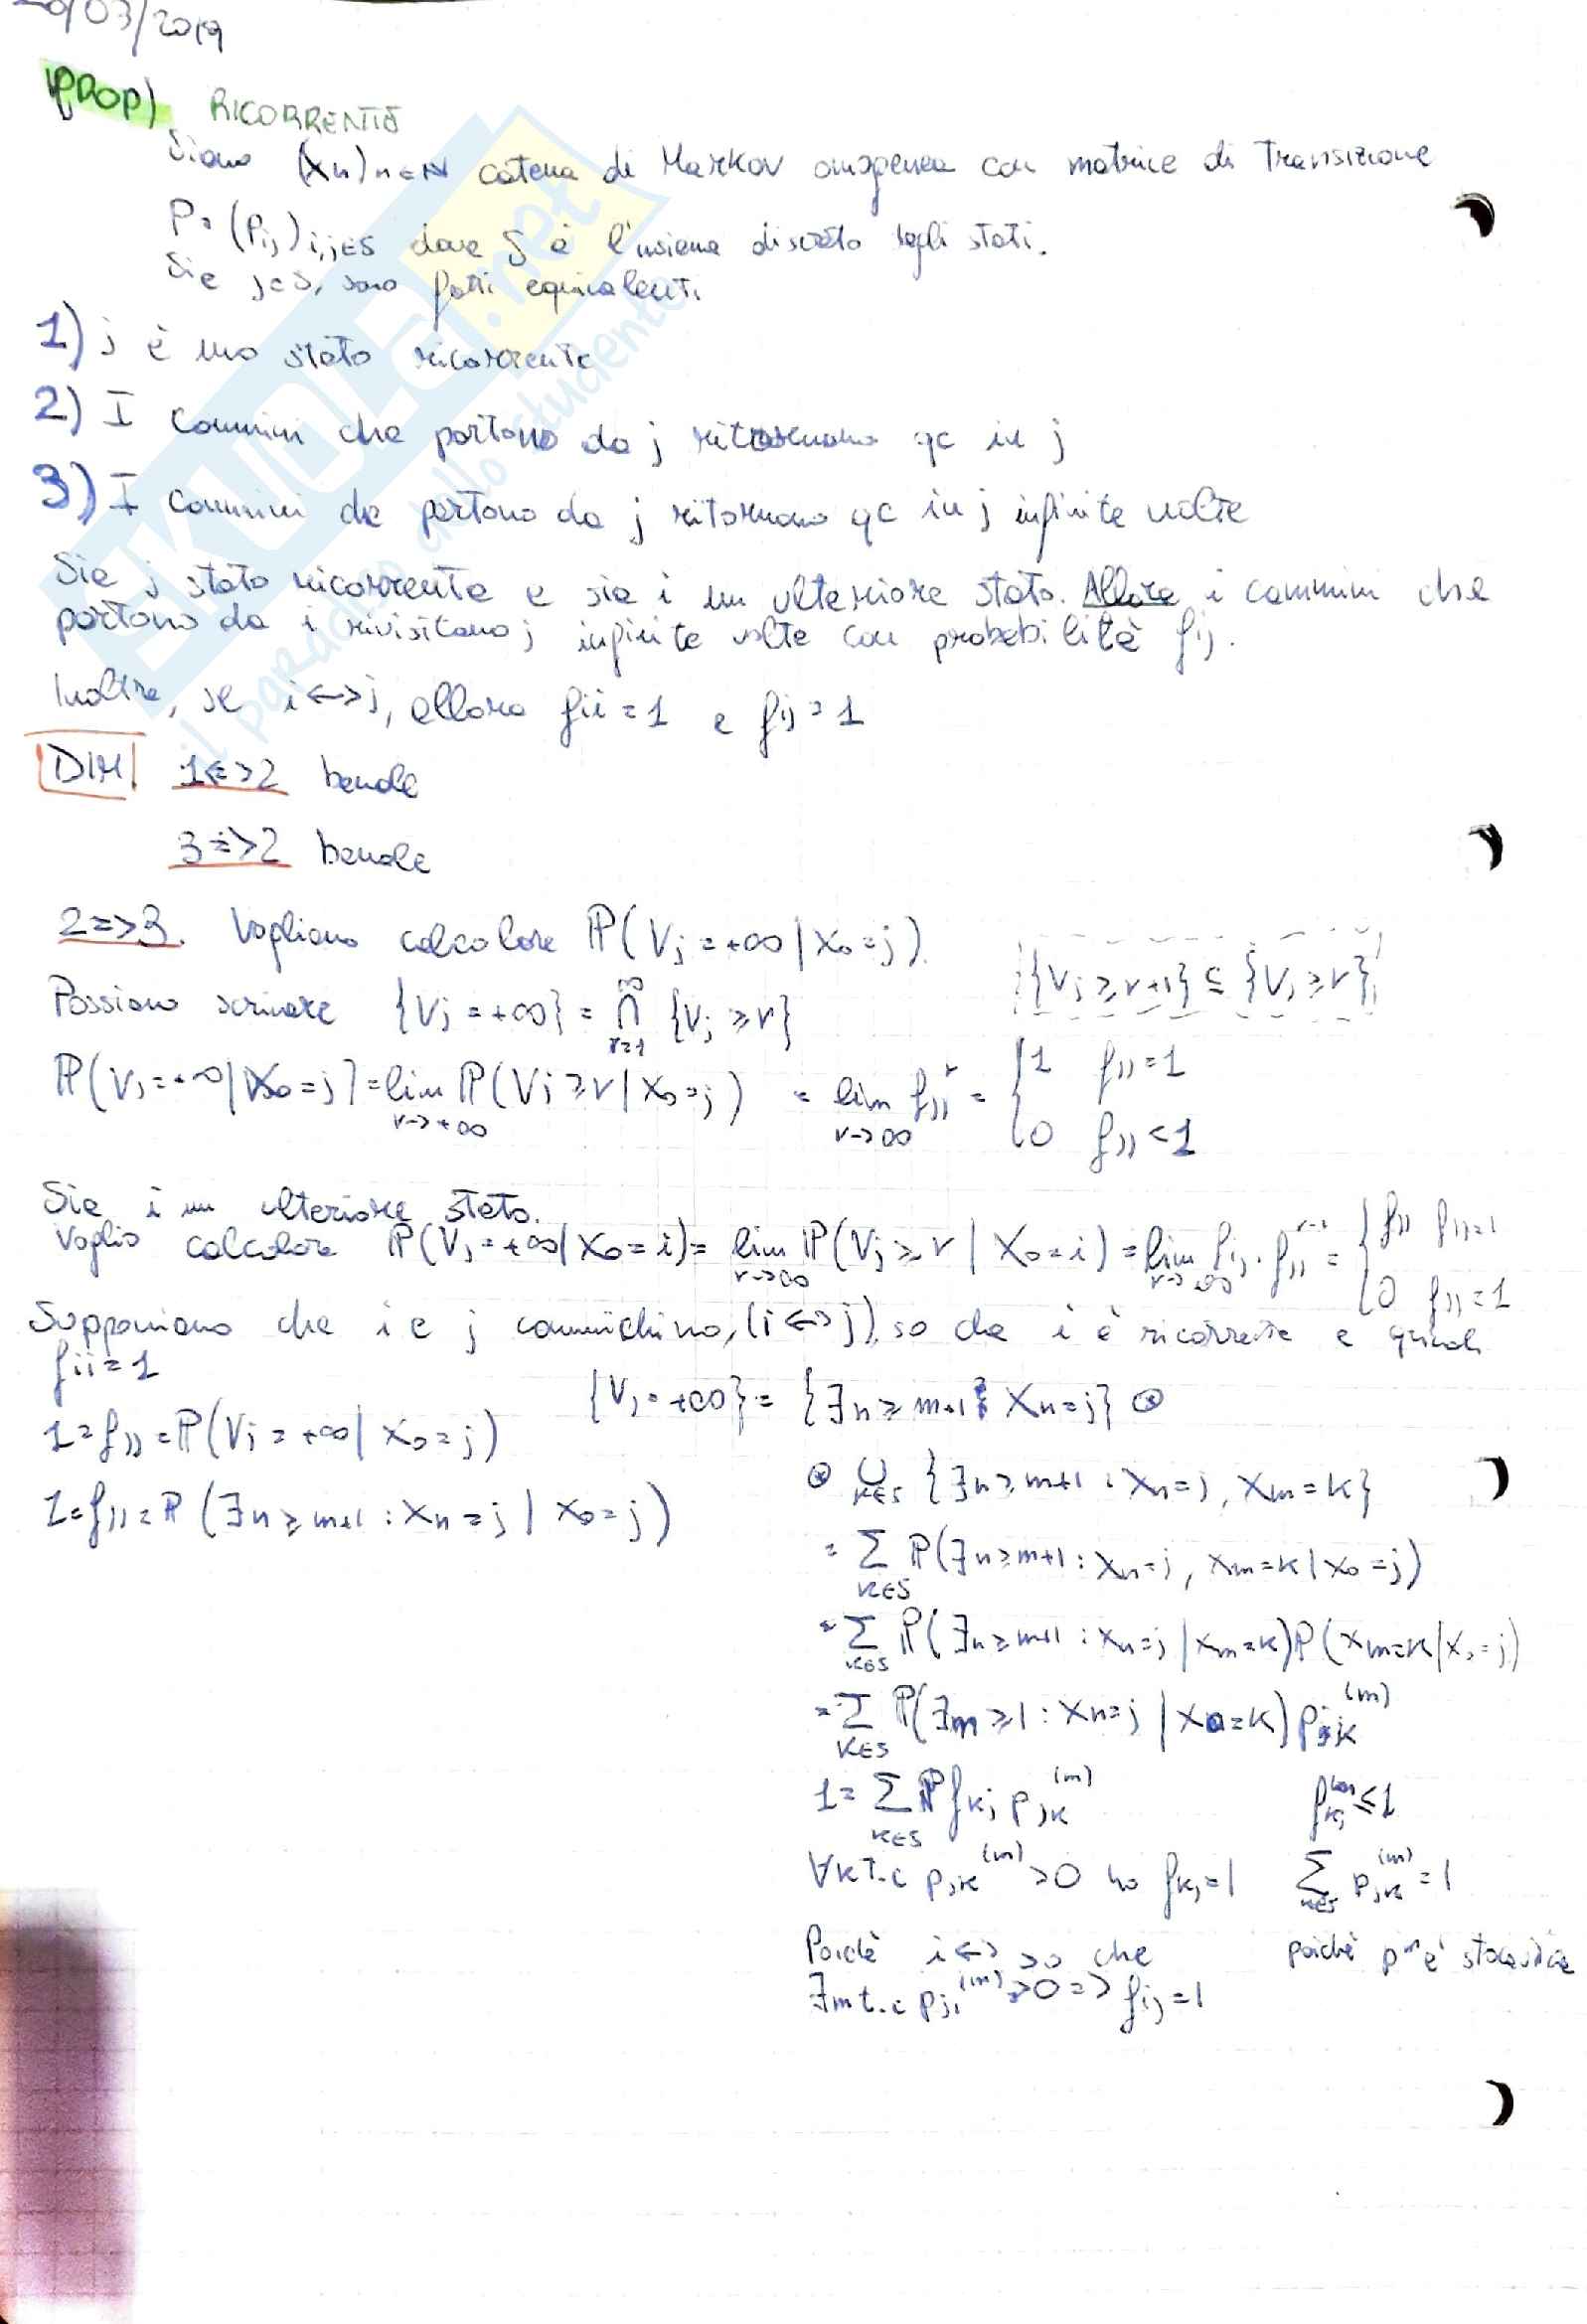 /03/2019
PROP) RICORRENTIS
Siano (Xn)n∈N catena di Markov omogenea con matrice di Transizione
P=(Pij)i,j∈S dove S è l'insieme discreto degli stati.
Sie j∈S, sono fatti equivalenti
1) j è uno stato ricorrente
2) I cammini che partono da j ritornano qc in j
3) I cammini che partono da j ritornano qc in j infinite volte
Sie j stato ricorrente e sia i un ulteriore stato. Allora i cammini che
partono da i rivisitano j infinite volte con probabilità fij.
Inoltre, se i<->j, allora fii=1 e fij=1
DIM 1<=>2 banale
3=>2 banale
2=>3. Vogliamo calcolare P(Vj=+∞|X0=j)
{Vj≥r+1}⊆{Vj≥r}
Possiamo scrivere {Vj=+∞} = ∩_{r=1}^{∞} {Vj≥r}
P(Vj=+∞|X0=j)=lim_{r->+∞} P(Vj≥r|X0=j) = lim_{r->∞} fjj^r = { 1 fjj=1
0 fjj<1
Sie i un ulteriore stato.
Voglio calcolare P(Vj=+∞|X0=i)= lim_{r->∞} P(Vj≥r|X0=i)=lim_{r->∞} fij·fjj^{r-1} = { fij fjj=1
0 fjj=1
Supponiamo che i e j comunichino, (i<->j), so che i è ricorrente e quindi
fii=1
{Vj=+∞}= {∃n≥m+1: Xn=j} ⊛
1=fjj=P(Vj=+∞|X0=j)
⊛ ∪_{k∈S} {∃n≥m+1: Xn=j, Xm=k}
1=fjj=P(∃n≥m+1: Xn=j | X0=j)
= Σ_{k∈S} P(∃n≥m+1: Xn=j, Xm=k|X0=j)
= Σ_{k∈S} P(∃n≥m+1: Xn=j|Xm=k)P(Xm=k|X0=j)
= Σ_{k∈S} P(∃m≥1: Xn=j|X0=k) Pjk^(m)
1= Σ_{k∈S} fkj Pjk^(m) fkj ≤1
∀k T.c Pjk^(m)>0 ho fkj=1 Σ_{k∈S} Pjk^(m)=1
Poichè i<-> so che poichè P^m è stocastica
∃m t.c Pji^(m)>0 => fij=1
SKUOLA.net
il paradiso dello studente